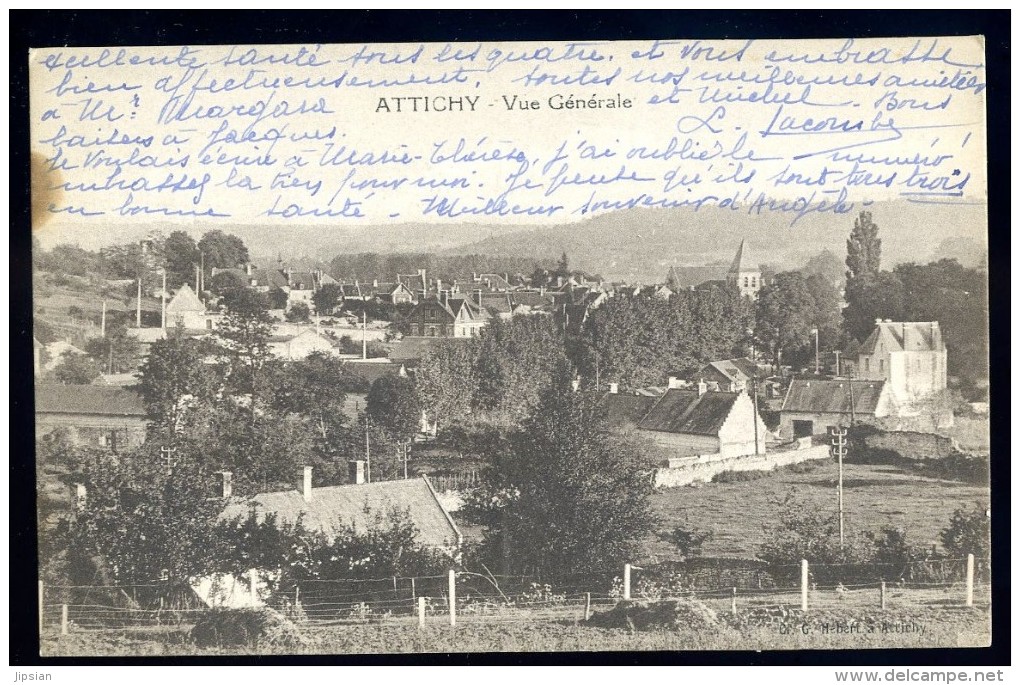 excellente santé tous les quatre. et vous embrasse
bien affectueusement. toutes nos meilleures amitiés
à Mr. Margara et Michel. Bons
ATTICHY - Vue Générale
baisers à Jacques. L. Lacombe
Je voulais écrire à Marie-Thérèse, j'ai oublié le numéro!
embrassez la bien pour moi. Je pense qu'ils sont tous trois
en bonne santé - Meilleur souvenir d'Angèle.
Cl. G. Hébert à Attichy
Jipsian
www.delcampe.net